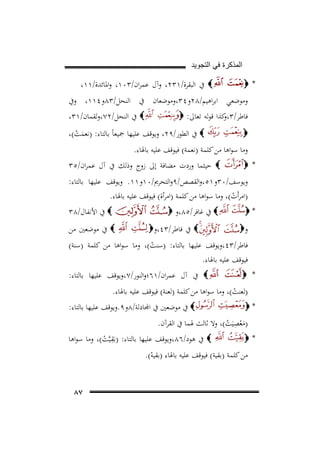 المذكرة في التجويد
* ﴿ نِعْمَتَ ٱللَّهِ ﴾ في البقرة/٢٣١، وآل عمران/١٠٣، والمائدة/١١،
وموضعي ابراهيم/٢٨و٣٤،وموضعان في النحل/٨٣و١١٤، وفي
فاطر/٣،وكذا قوله تعالى: ﴿ وَبِنِعْمَتِ ٱللَّهِ ﴾ في النحل/٧٢،ولقمان/٣١،
* ﴿ بِنِعْمَتِ رَبِّكَ ﴾ في الطور/٢٩، ويوقف عليها جميعاً بالتاء: (نعمَتْ)،
وما سواها من كلمة (نعمة) فيوقف عليه بالهاء.
* ﴿ ٱمْرَأَتُ ﴾ حيثما وردت مضافة إلى زوج وذلك في آل عمران/٣٥
ويوسف/٣٠و٥١،والقصص/٩والتحريم/١٠و١١. ويوقف عليها بالتاء:
(امرأتْ)، وما سواها من كلمة (امرأة) فيوقف عليه بالهاء.
* ﴿ سُنَّتَ ٱللَّهِ ﴾ في غافر/٨٥،و ﴿ سُنَّتُ ٱلْأَوَّلِينَ ﴾ في الأنفال/٣٨
و ﴿ سُنَّتَ ٱلْأَوَّلِينَ ﴾ في فاطر/٤٣،و ﴿ لِسُنَّتِ ٱللَّهِ ﴾ في موضعين من
فاطر/٤٣،ويوقف عليها بالتاء: (سنتْ)، وما سواها من كلمة (سنة)
فيوقف عليه بالهاء.
* ﴿ لَعْنَتَ ٱللَّهِ ﴾ في آل عمران/٦١والنور/٧،ويوقف عليها بالتاء:
(لعنتْ)، وما سواها من كلمة (لعنة) فيوقف عليه بالهاء.
* ﴿ وَمَعْصِيَتِ ٱلرَّسُولِ ﴾ في موضعين في المجادلة/٨و٩ .ويوقف عليها بالتاء:
(مَعْصِيَتْ)، ولا ثالث لهما في القرآن.
* ﴿ بَقِيَّتُ ٱللَّهِ ﴾ في هود/٨٦،ويوقف عليها بالتاء: (بَقِيَّتْ)، وما سواها
من كلمة (بقية) فيوقف عليه بالهاء (بقية).
٨٧